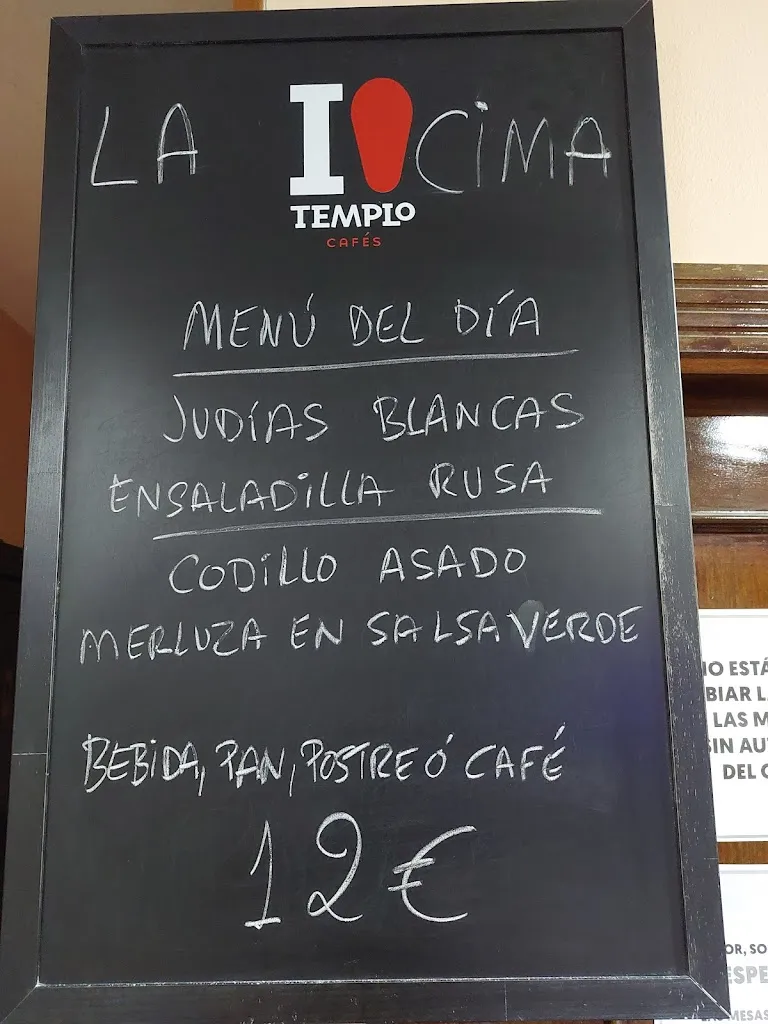 LA CIMA
TEMPLO
CAFÉS
MENÚ DEL DÍA
JUDÍAS BLANCAS
ENSALADILLA RUSA
CODILLO ASADO
MERLUZA EN SALSA VERDE
BEBIDA, PAN, POSTRE Ó CAFÉ
12 €
ESTÁ
LAS
SIN
DEL
MESAS